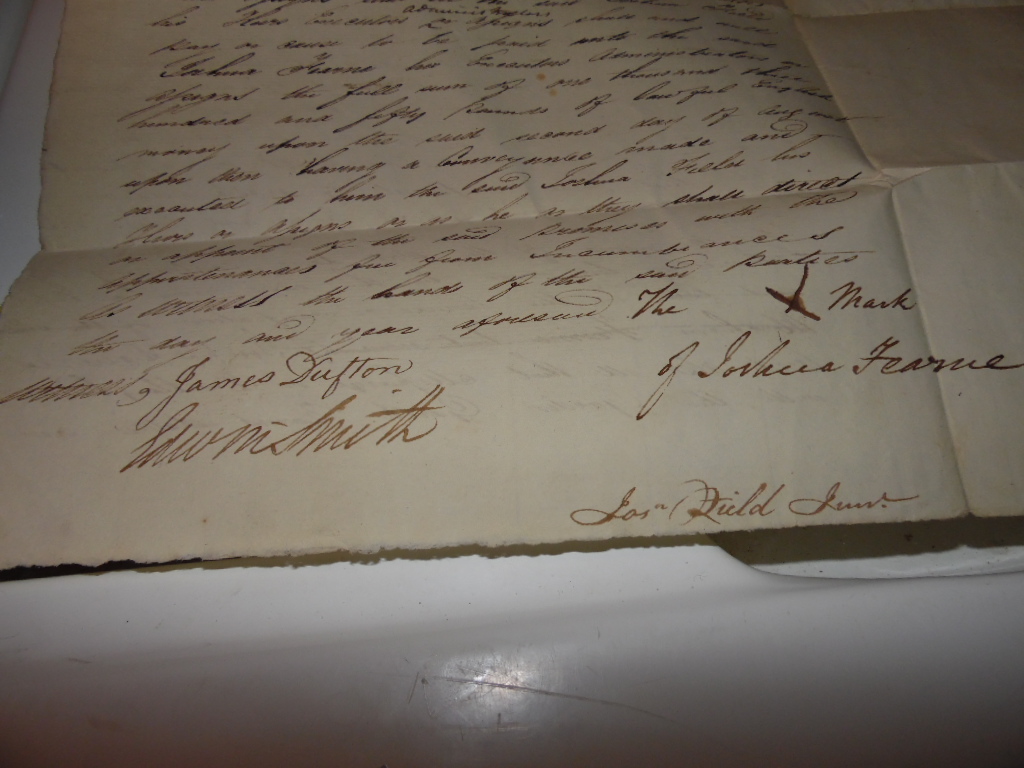 his Heirs Executors Administrators or Assigns shall and
pay or cause to be paid unto the said
Joshua Fearne his Executors Administrators or
Assigns the full sum of one thousand three
hundred and fifty Pounds of lawful English
money upon the said second day of August
upon then having a Conveyance made and
executed to him the said Joshua Field his
Heirs or Assigns or as he or they shall direct
or appoint of the said premises with the
appurtenances free from Incumbrances
As witness the hands of the said parties
the day and year aforesaid The X Mark
of Joshua Fearne
Witness, James Dufton
Edwm Smith
Josa. Field Junr.